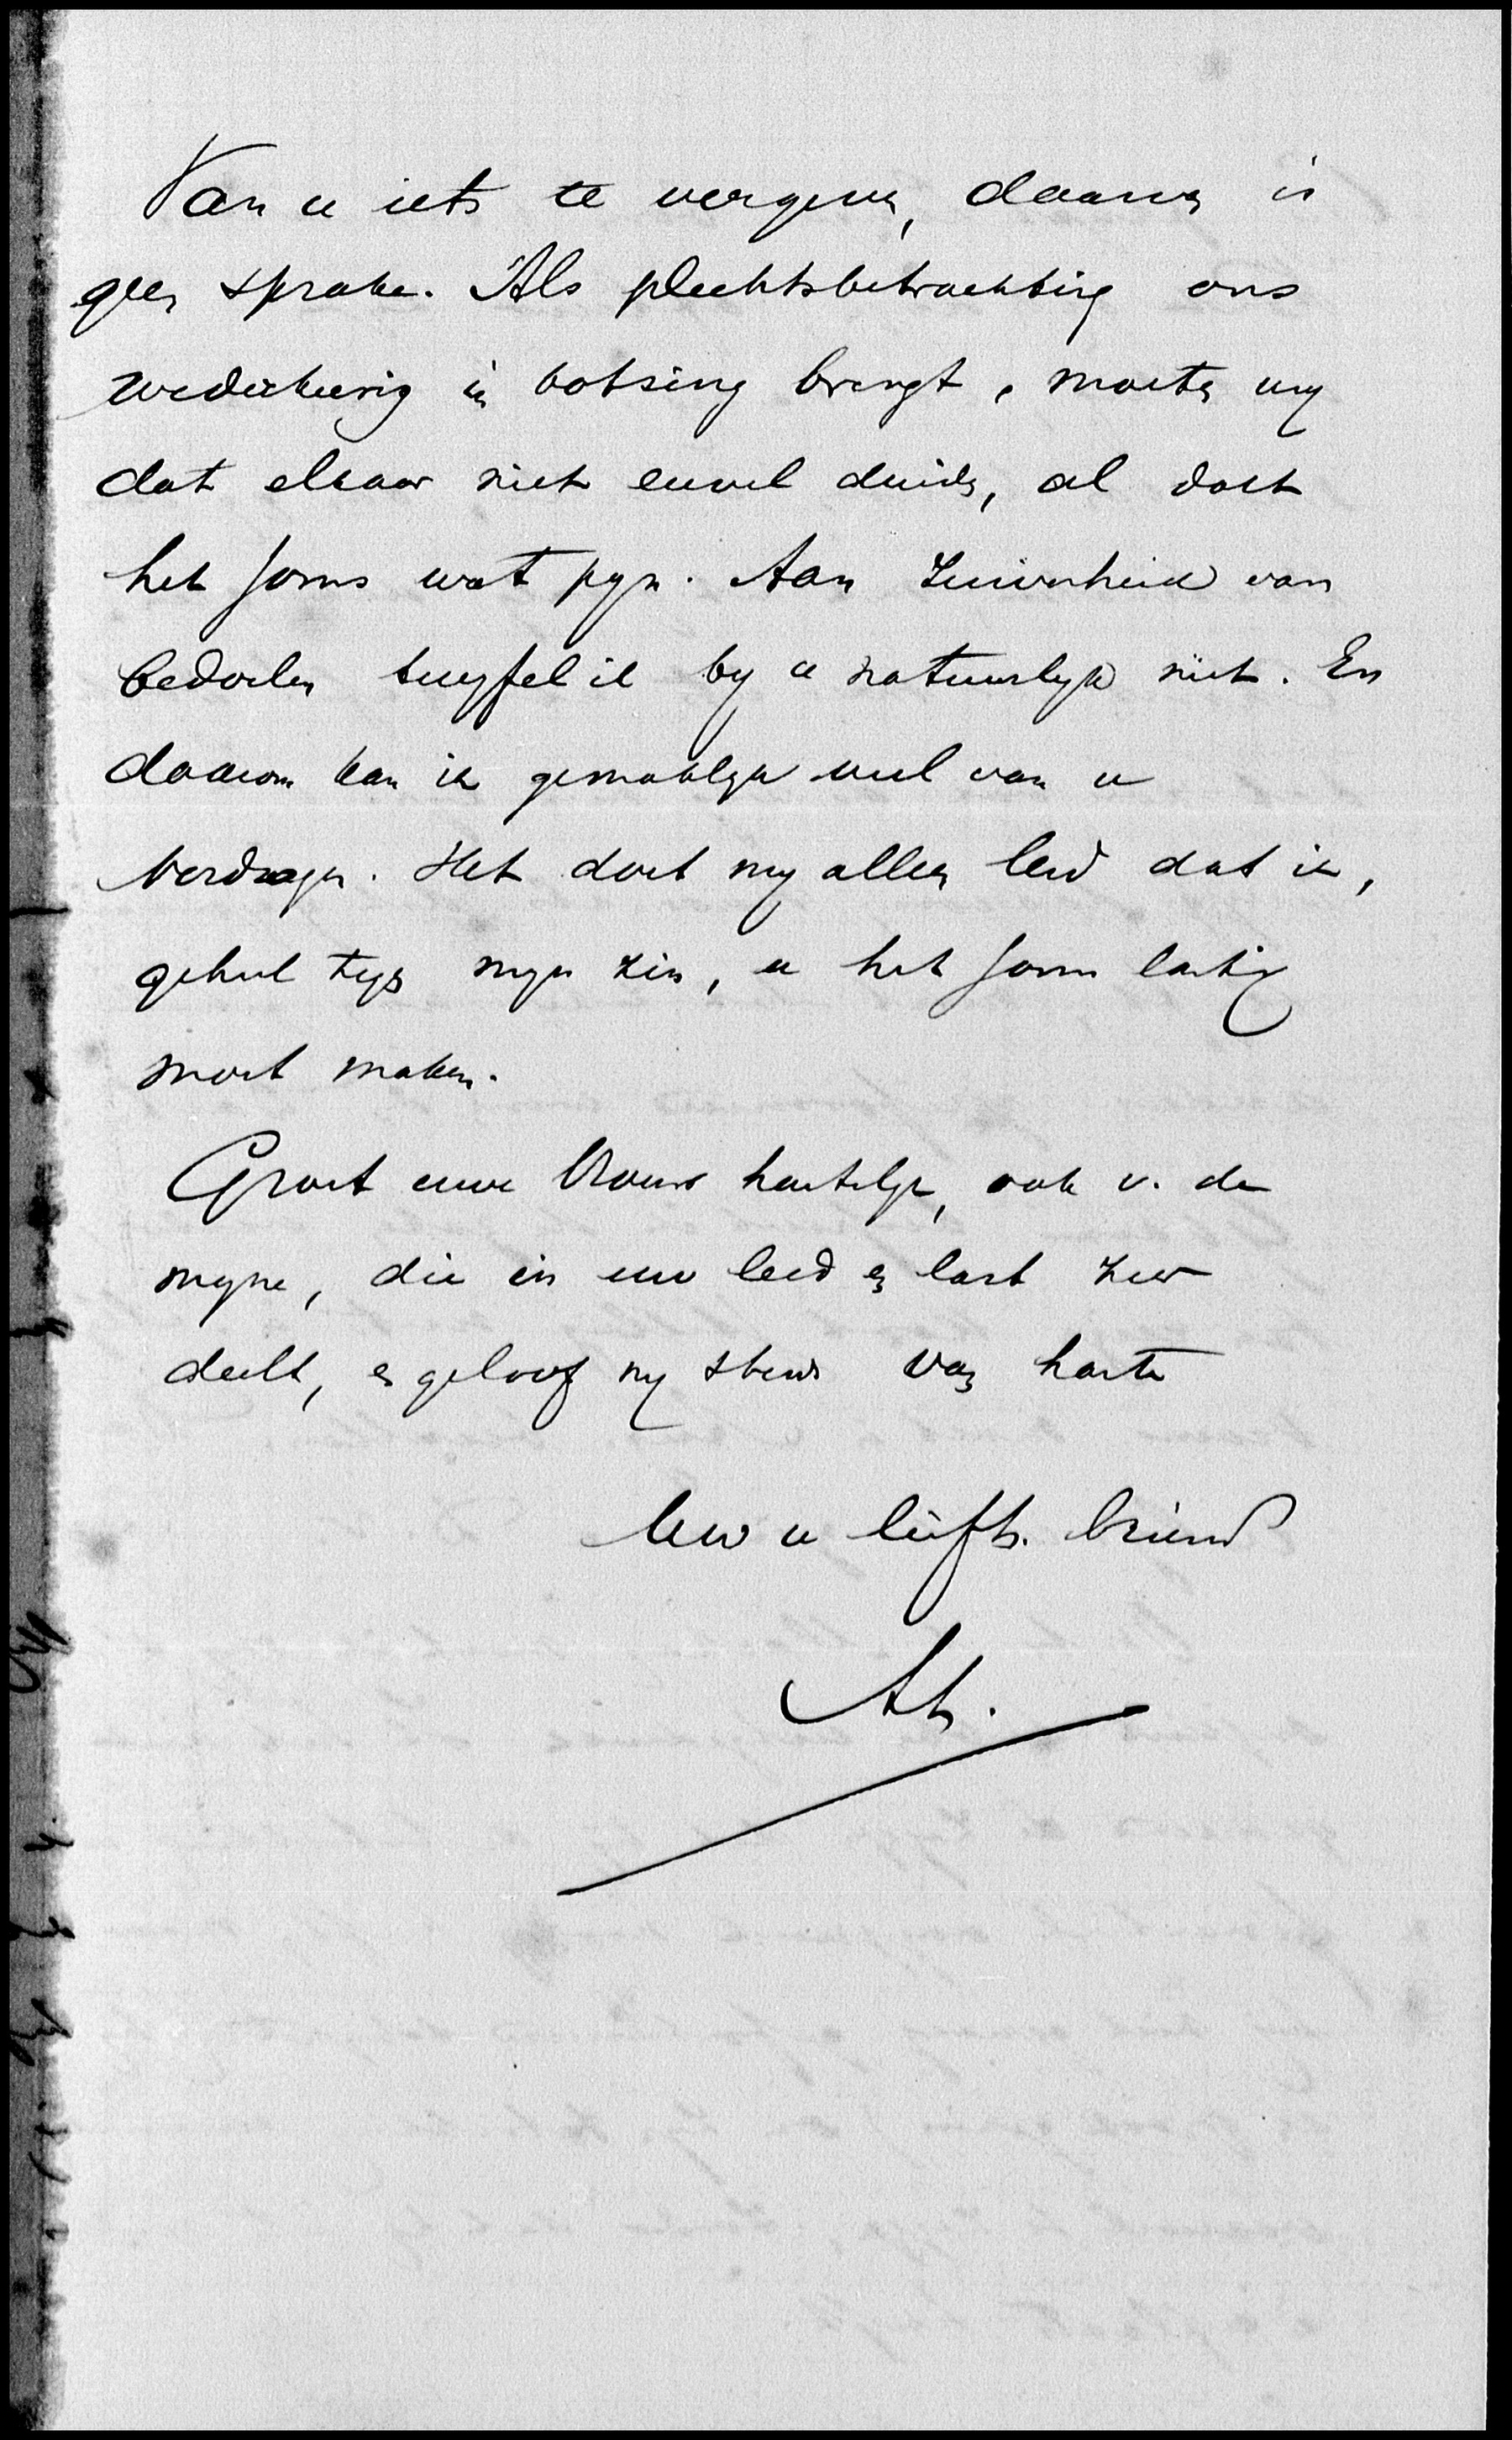 Van u iets te vergeven, daarvan is
geen sprake. Als plechtsbetrachting ons
wederkeerig in botsing brengt, moeten wy
dat elkaar niet euvel duiden, al doet
het soms wat pyn. Aan zuiverheid van
bedoelen twyfel ik by u natuurlyk niet. En
daarom kan ik gemaklyk veel van u
verdragen. Het doet my alleen leed dat ik,
geheel tegen myn zin, u het soms lastig
moet maken.
Groet uwe vrouw hartelyk, ook v. de
myne, die in uw leed en last zeer
deelt, en geloof my steeds van harte
Uw u liefh. vriend